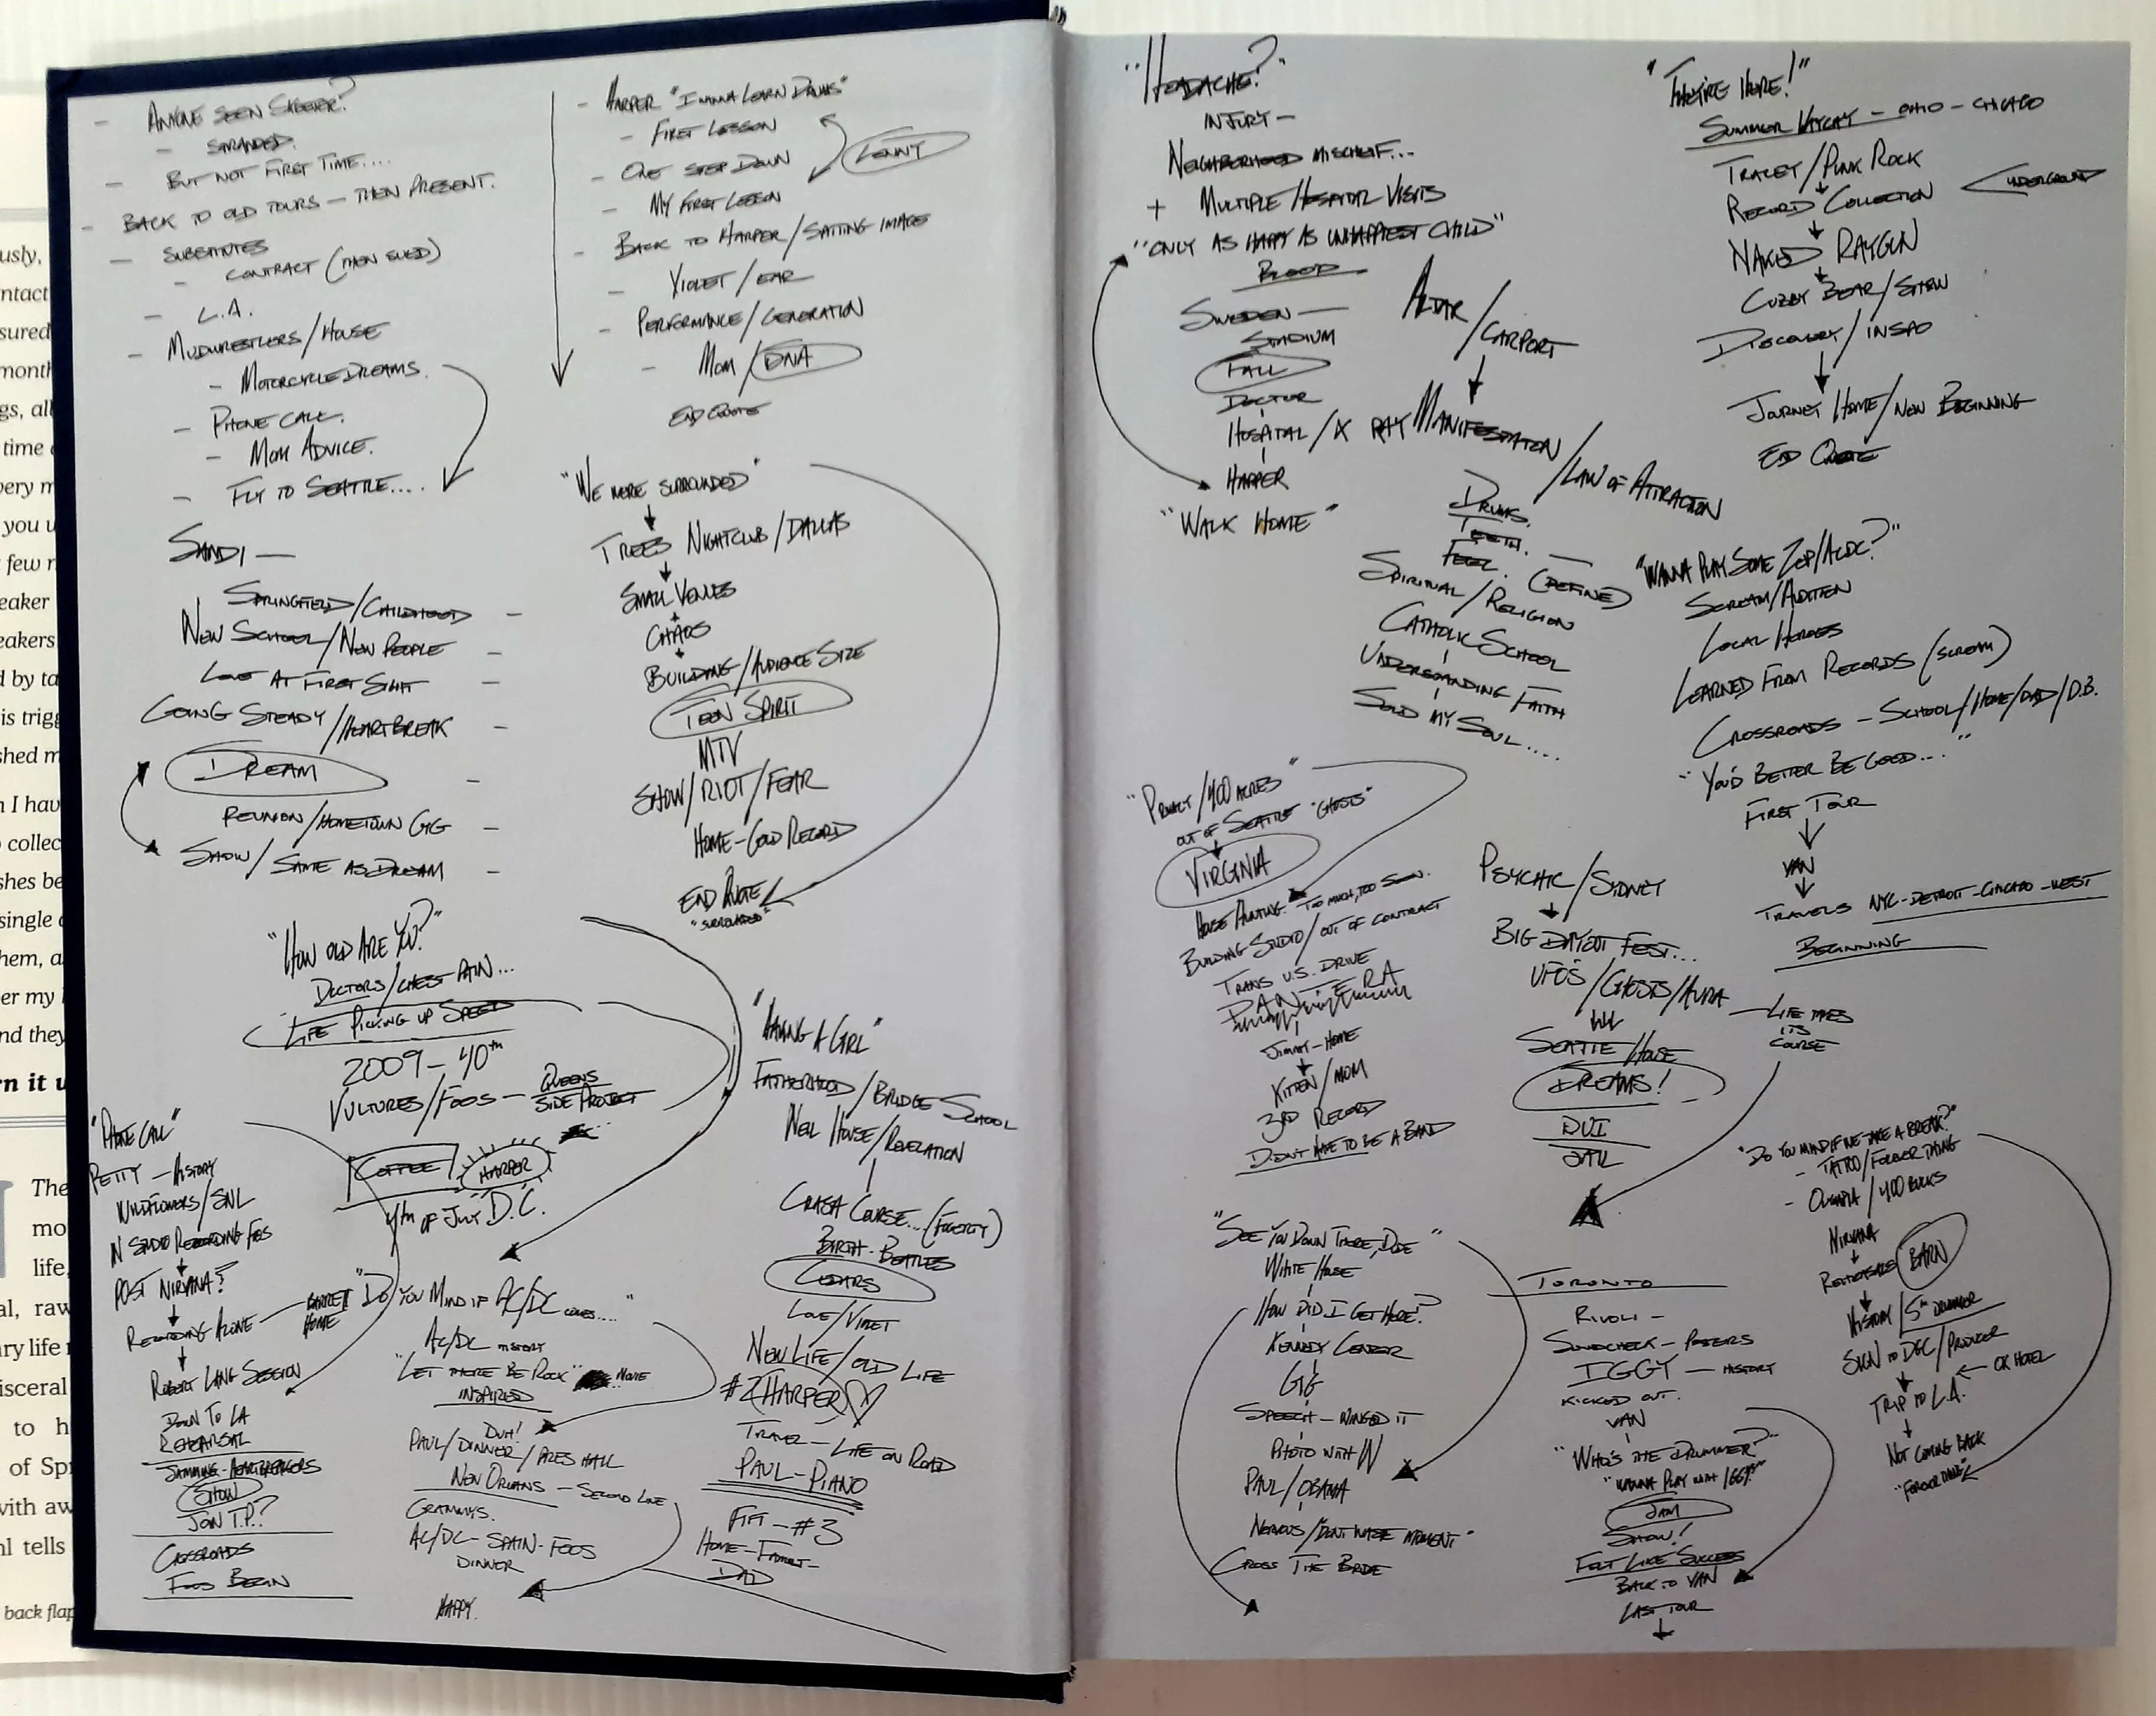 - ANYONE SEEN SKEETER?
- STRANDED.
- BUT NOT FIRST TIME....
- BACK TO OLD TOURS - THEN PRESENT.
- SUBSTITUTES
- CONTRACT (THEN SUED)
- L.A.
- MUDWRESTLERS/HOUSE
- MOTORCYCLE DREAMS.
- PHONE CALL.
- MOM ADVICE.
- FLY TO SEATTLE....
SANDI -
SPRINGFIELD/CHILDHOOD -
NEW SCHOOL/NEW PEOPLE -
LOVE AT FIRST SIGHT -
GOING STEADY/HEARTBREAK -
DREAM -
REUNION/HOMETOWN GIG -
SHOW/SAME AS DREAM -
- HARPER "I WANNA LEARN DRUMS"
- FIRST LESSON
- ONE STEP DOWN
LENNY
- MY FIRST LESSON
- BACK TO HARPER/SITTING IMAGE
- VIOLET/EAR
- PERFORMANCE/GENERATION
- MOM/DNA
END QUOTE
"WE WERE SURROUNDED"
TREES NIGHTCLUB/DALLAS
SMALL VENUES
CHAOS
BUILDING/AUDIENCE SIZE
TEEN SPIRIT
MTV
SHOW/RIOT/FEAR
HOME-GOLD RECORD
END QUOTE
"SURROUNDED"
"HOW OLD ARE YOU?"
DOCTORS/CHEST PAIN...
LIFE PICKING UP SPEED
2009-40TH
VULTURES/FOOS - QUEENS
SIDE PROJECT
COFFEE
HARPER
4TH OF JULY D.C.
"PHONE CALL"
PETTY - HISTORY
WILDFLOWERS/SNL
IN STUDIO RECORDING FOOS
POST NIRVANA?
RECORDING ALONE - BARRETT
HOME
ROBERT LANG SESSION
DOWN TO LA
REHEARSAL
JAMMING-HEARTBREAKERS
SHOW
JOIN T.P.?
CROSSROADS
FOOS BEGIN
"DO YOU MIND IF AC/DC COMES...."
AC/DC HISTORY
"LET THERE BE ROCK" MOVIE
INSPIRED
DUH!
PAUL/DINNER/PRES HALL
NEW ORLEANS - SECOND LINE
GRAMMYS.
AC/DC-SPAIN-FOOS
DINNER
HAPPY.
"HAVING A GIRL"
FATHERHOOD/BRIDGE SCHOOL
NEIL HOUSE/REVELATION
CRASH COURSE...(FOGERTY)
BIRTH-BEATLES
CEDARS
LOVE/VIOLET
NEW LIFE/OLD LIFE
#2 HARPER
TRAVEL - LIFE ON ROAD
PAUL-PIANO
FIFI-#3
HOME-FAMILY-
DAD
"HEADACHE?"
INJURY -
NEIGHBORHOOD MISCHIEF...
+ MULTIPLE HOSPITAL VISITS
"ONLY AS HAPPY AS UNHAPPIEST CHILD"
BLOOD
SWEDEN -
STADIUM
FALL
DOCTOR
HOSPITAL/X RAY
HARPER
"WALK HOME"
ALTAR/CARPORT
MANIFESTATION/LAW OF ATTRACTION
DRUMS.
TEETH.
FEEL. (DEFINE)
SPIRITUAL/RELIGION
CATHOLIC SCHOOL
UNDERSTANDING FAITH
SOLD MY SOUL....
"THEY'RE HERE!"
SUMMER VAYCAY - OHIO - CHICAGO
TRACEY/PUNK ROCK
RECORD COLLECTION
UNDERGROUND
NAKED RAYGUN
CUBBY BEAR/SHOW
DISCOVERY/INSPO
JOURNEY HOME/NEW BEGINNING
END QUOTE
"WANNA PLAY SOME ZEP/ACDC?"
SCREAM/AUDITION
LOCAL HEROES
LEARNED FROM RECORDS (SCREAM)
CROSSROADS - SCHOOL/HOME/DAD/D.B.
"YOU'D BETTER BE GOOD..."
FIRST TOUR
VAN
TRAVELS NYC-DETROIT-CHICAGO-WEST
BEGINNING
"PRIVACY/400 ACRES"
OUT OF SEATTLE "GHOSTS"
VIRGINIA
HOUSE HUNTING. TOO MUCH, TOO SOON.
BUILDING STUDIO/OUT OF CONTRACT
TRANS U.S. DRIVE
PANTERA
JIMMY-HOME
KITTEN/MOM
3RD RECORD
DIDN'T HAVE TO BE A BAND
PSYCHIC/SYDNEY
BIG DAY OUT FEST...
UFOS/GHOSTS/AURA
- LIFE TAKES
ITS
COURSE
SEATTLE/HOUSE
DREAMS!
DUI
JAIL
"SEE YOU DOWN THERE, DUDE"
WHITE HOUSE
HOW DID I GET HERE?
KENNEDY CENTER
GIG
SPEECH - WINGED IT
PHOTO WITH W
PAUL/OBAMA
NERVOUS/"DON'T WASTE MOMENT"
CROSS THE BRIDGE
TORONTO
RIVOLI -
SOUNDCHECK - POSTERS
IGGY - HISTORY
KICKED OUT.
VAN
"WHO'S THE DRUMMER?"
"WANNA PLAY WITH IGGY?"
JAM
SHOW!
FELT LIKE SUCCESS
BACK TO VAN
LAST TOUR
"DO YOU MIND IF WE TAKE A BREAK?"
- TATTOO/FOREVER THING
- OLYMPIA/400 BUCKS
NIRVANA
REHEARSALS BARN
HISTORY/5TH DRUMMER
SIGN TO DGC/PRODUCER
OK HOTEL
TRIP TO L.A.
NOT COMING BACK